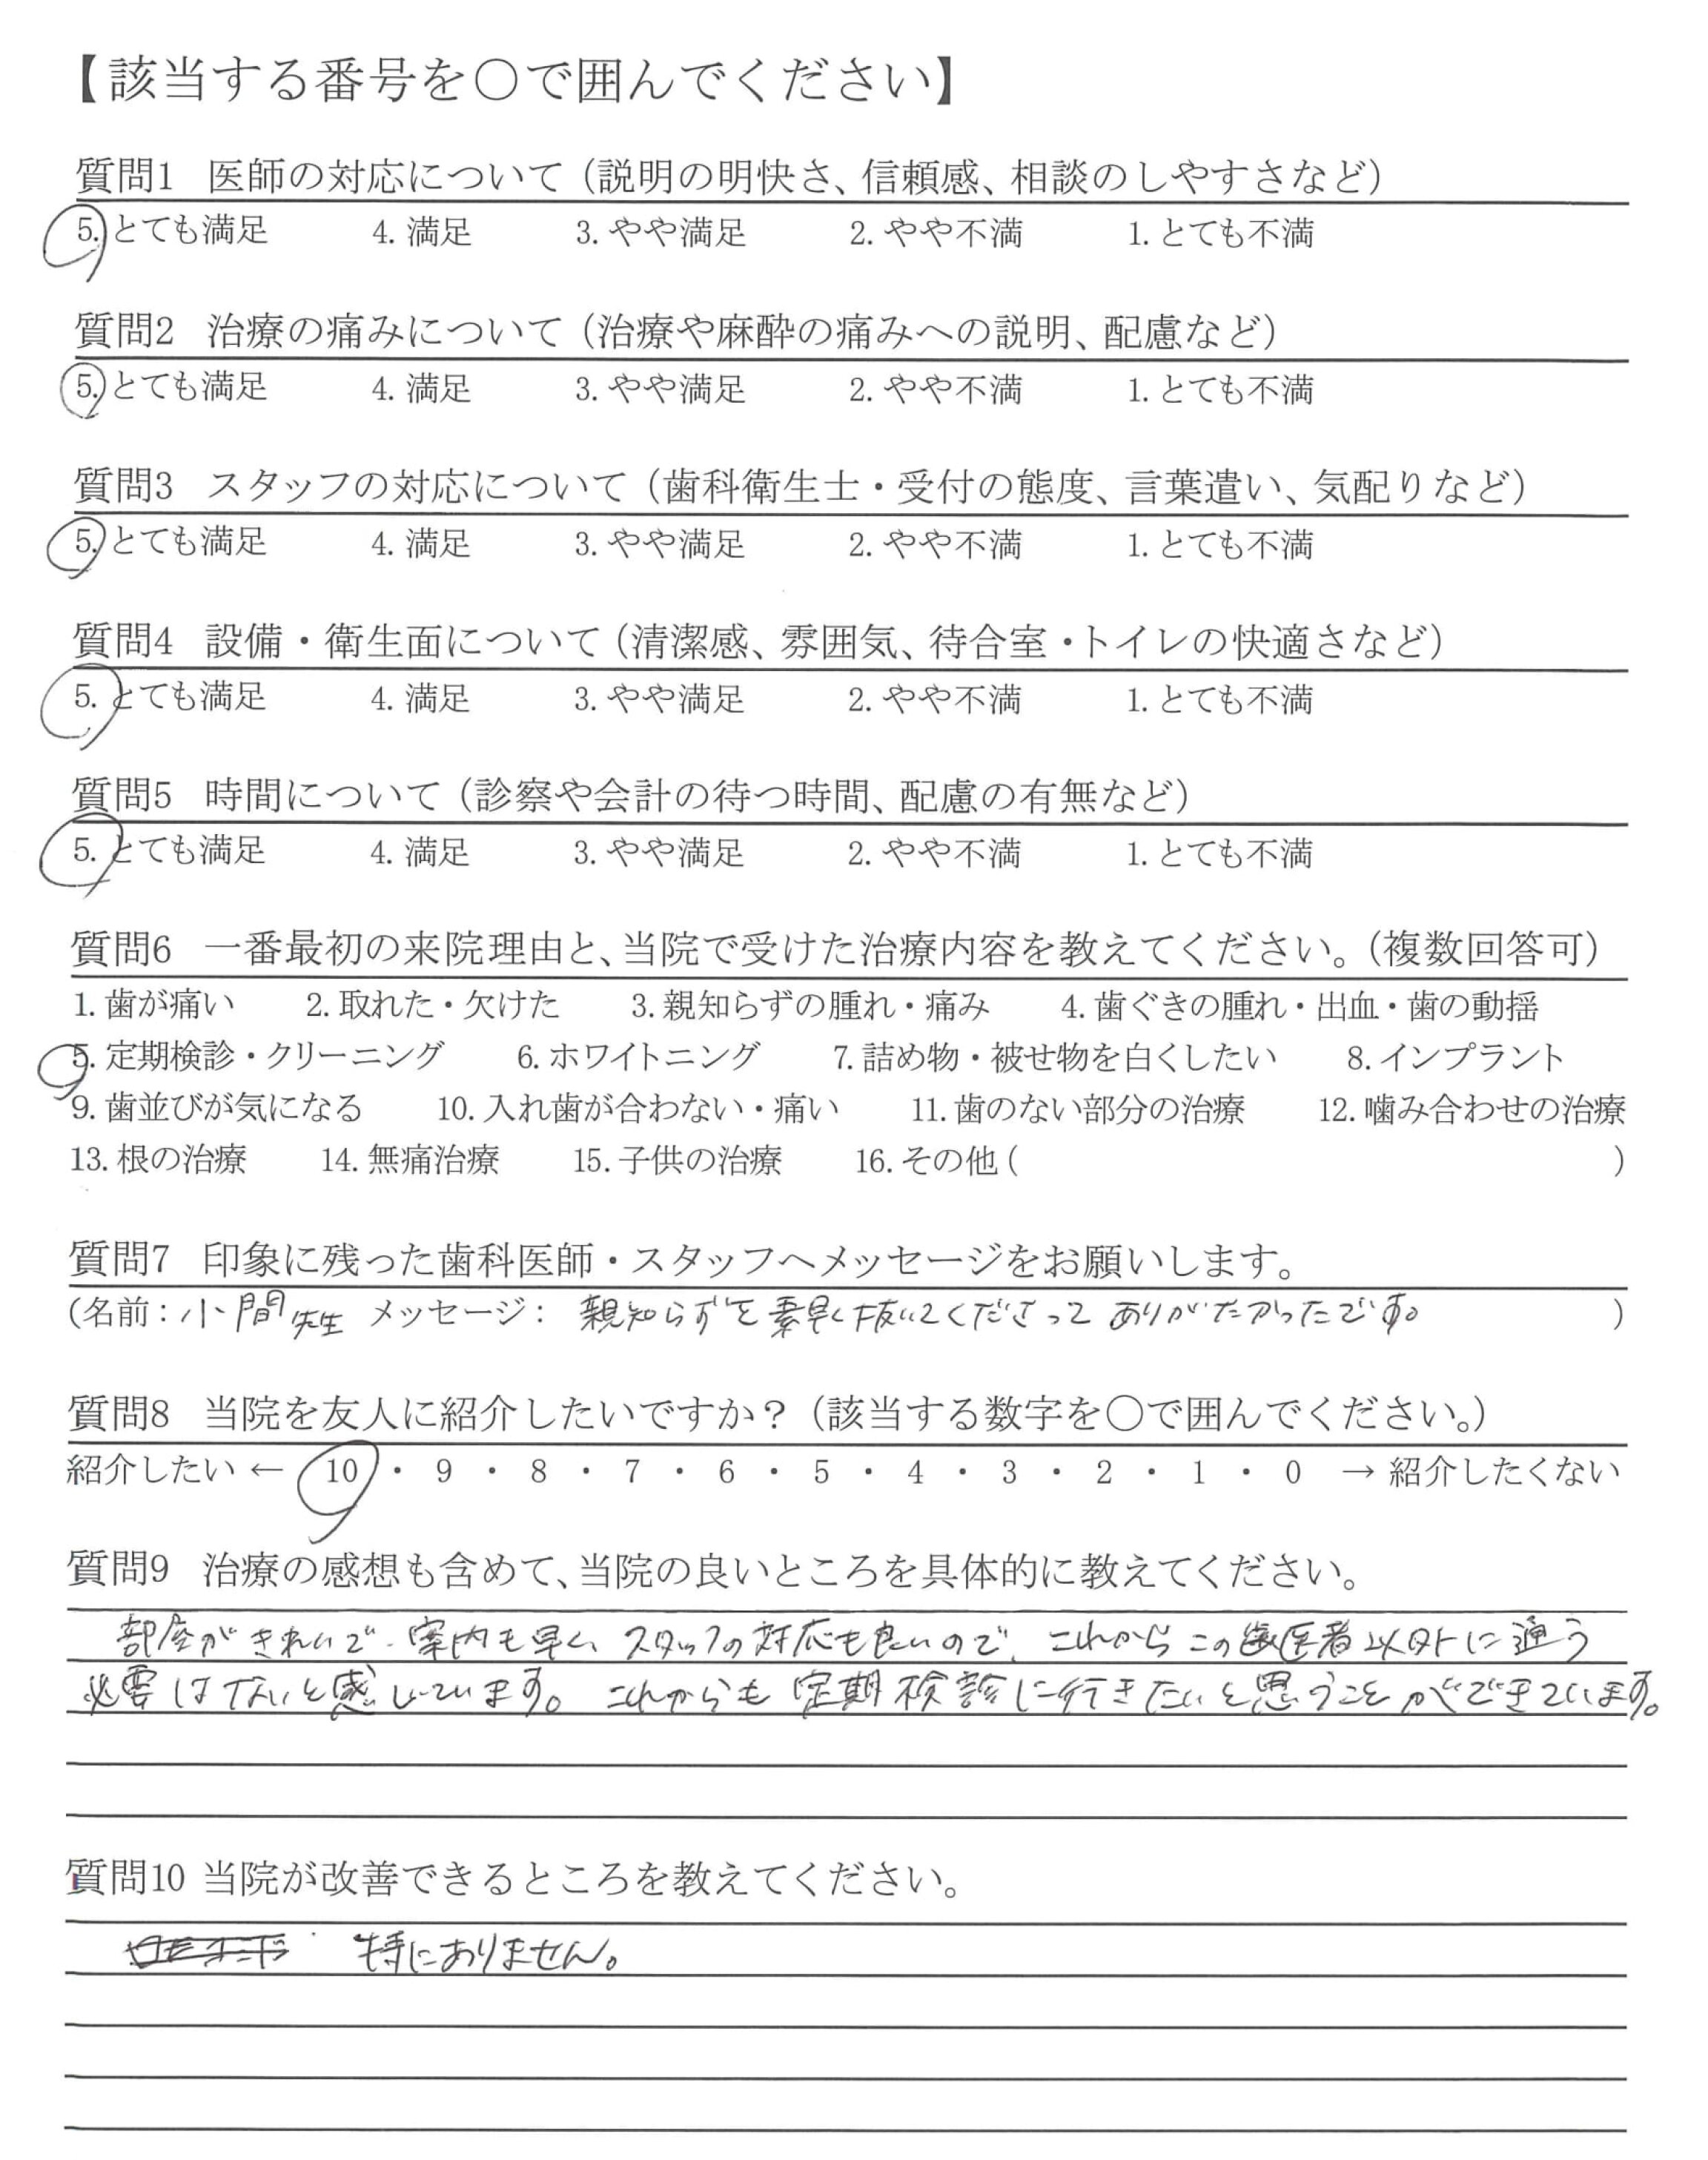 【該当する番号を〇で囲んでください】
質問1 医師の対応について（説明の明快さ、信頼感、相談のしやすさなど）
5. とても満足 4. 満足 3. やや満足 2. やや不満 1. とても不満
質問2 治療の痛みについて（治療や麻酔の痛みへの説明、配慮など）
5. とても満足 4. 満足 3. やや満足 2. やや不満 1. とても不満
質問3 スタッフの対応について（歯科衛生士・受付の態度、言葉遣い、気配りなど）
5. とても満足 4. 満足 3. やや満足 2. やや不満 1. とても不満
質問4 設備・衛生面について（清潔感、雰囲気、待合室・トイレの快適さなど）
5. とても満足 4. 満足 3. やや満足 2. やや不満 1. とても不満
質問5 時間について（診察や会計の待つ時間、配慮の有無など）
5. とても満足 4. 満足 3. やや満足 2. やや不満 1. とても不満
質問6 一番最初の来院理由と、当院で受けた治療内容を教えてください。（複数回答可）
1. 歯が痛い 2. 取れた・欠けた 3. 親知らずの腫れ・痛み 4. 歯ぐきの腫れ・出血・歯の動揺
5. 定期検診・クリーニング 6. ホワイトニング 7. 詰め物・被せ物を白くしたい 8. インプラント
9. 歯並びが気になる 10. 入れ歯が合わない・痛い 11. 歯のない部分の治療 12. 噛み合わせの治療
13. 根の治療 14. 無痛治療 15. 子供の治療 16. その他（ ）
質問7 印象に残った歯科医師・スタッフへメッセージをお願いします。
（名前：小間先生 メッセージ： 親知らずを素早く抜いてくださってありがたかったです。 ）
質問8 当院を友人に紹介したいですか？（該当する数字を〇で囲んでください。）
紹介したい ← 10 ・ 9 ・ 8 ・ 7 ・ 6 ・ 5 ・ 4 ・ 3 ・ 2 ・ 1 ・ 0 → 紹介したくない
質問9 治療の感想も含めて、当院の良いところを具体的に教えてください。
部屋がきれいで、案内も早く、スタッフの対応も良いので、これからこの歯医者以外に通う
必要はないと感じています。これからも定期検診に行きたいと思うことができています。
質問10 当院が改善できるところを教えてください。
特にありません。